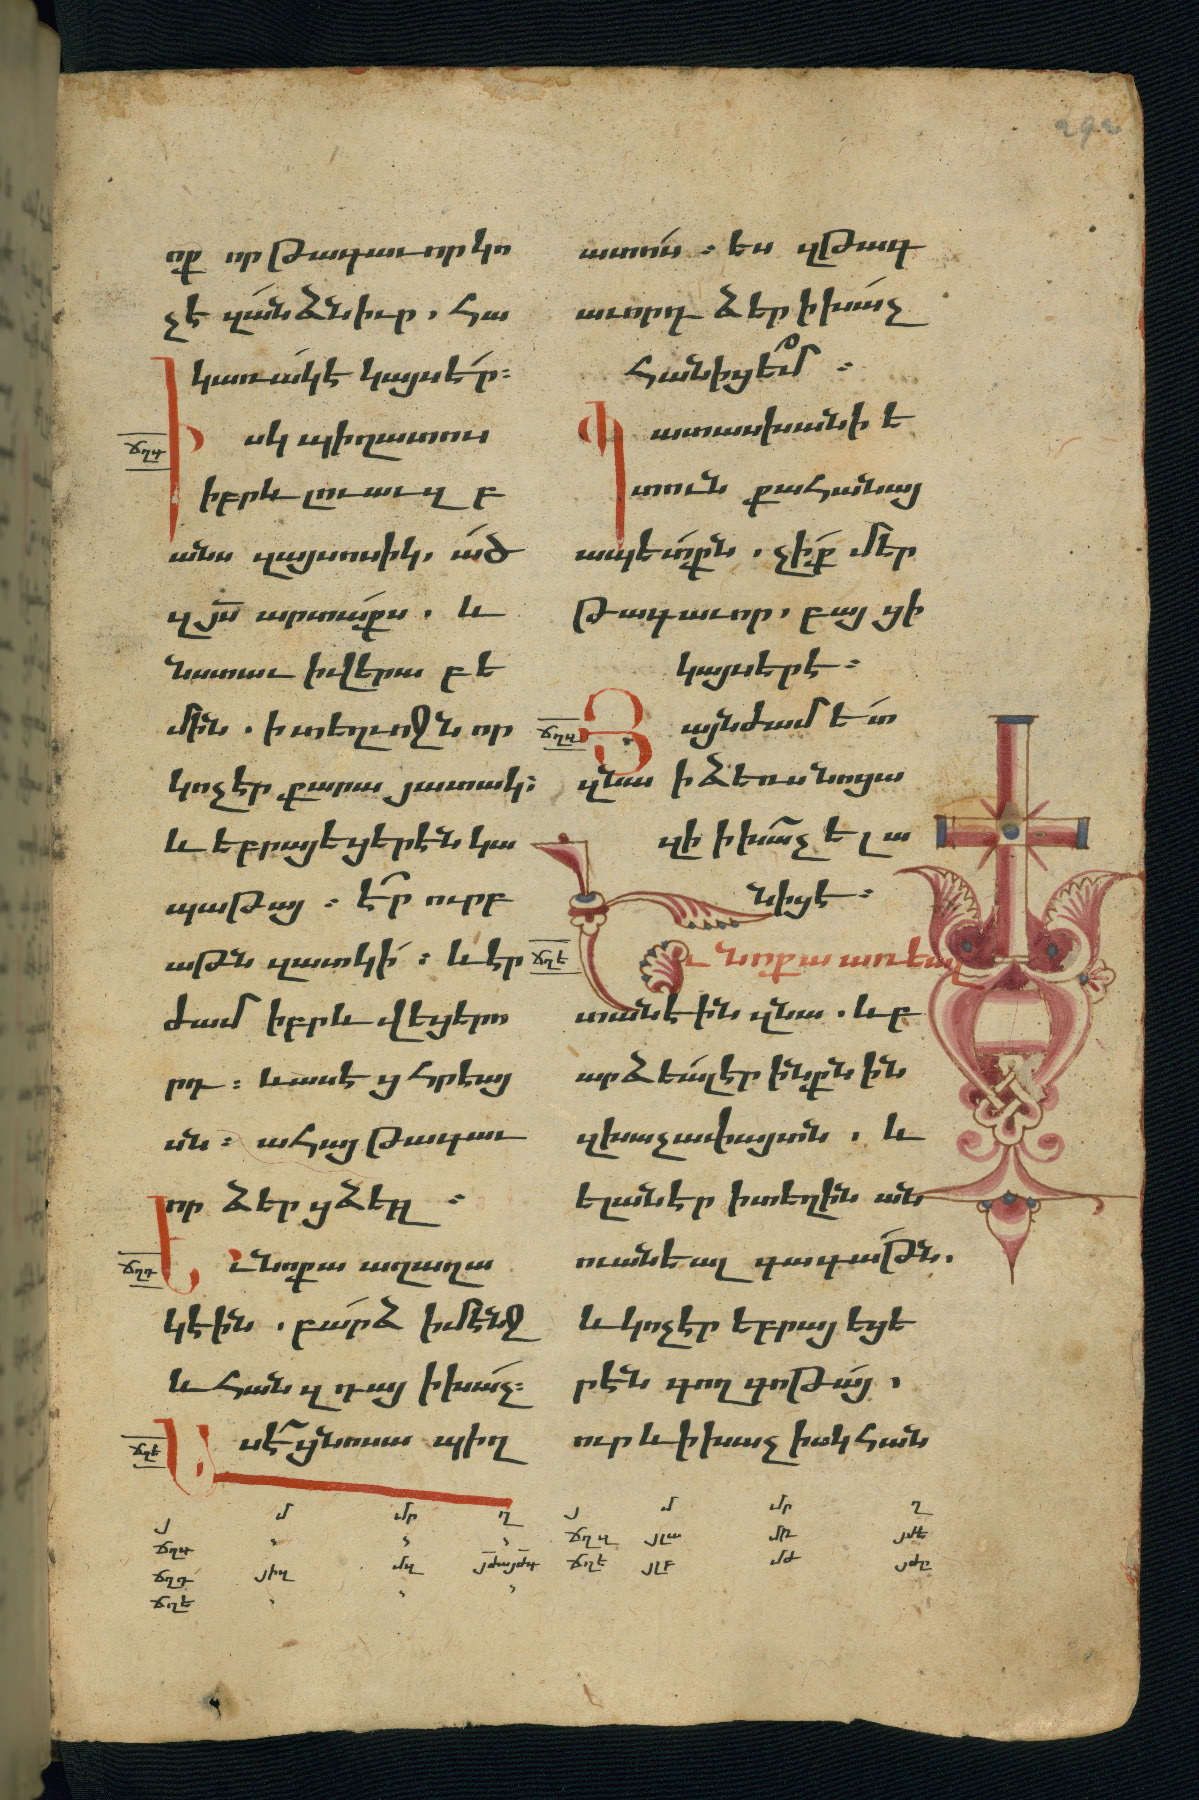 ոք որ թագաւոր կո
չէ զանձնիւր, հա
կառակէ կայսեր։
ճղգ
Իսկ պիղատոս
իբրև լուաւ զբ
անս զայսոսիկ, ած
զյս արտաքս. և
նստաւ ի վերա բե
մին. ի տեղւոջն որ
կոչէր քարայատակ։
և եբրայեցերէն կա
պաթայ։ էր ուրբ
աթն զատկի։ և էր
ժամ իբրև վեցերո
րդ։ և ասէ ցհրեայ
սն։ ահայ թագաւ
որ ձեր ցձեզ։
ճղդ
Եւ նոքա աղաղա
կէին. բարձ ի մէնջ
և հան զդայ ի խաչ։
ճղե
Ասէ ցնոսա պիղ
ատոս։ ես զթագ
աւորդ ձեր ի խաչ
հանիցեմ։
Պատասխանի ե
տուն քահանայ
ապետքն. չիք մեր
թագաւոր, բայց ի
կայսերէ։
ճղզ
Յայնժամ ետ
զնա ի ձեռս նոցա
զի ի խաչ ելա
նիցէ։
ճղէ
Եւ նոքա առեալ
տանէին զնա. և բ
արձեալ էր ինքնին
զխաչափայտն. և
ելանէր ի տեղին ան
ուանեալ գագաթն.
և կոչէր եբրայեցե
րէն գողգոթայ,
ուր և ի խաչ իսկ հան
յ մ մր ղ
ճղգ
ճղդ յիզ մզ
ճղե
յ մ մր ղ
ճղզ յլա յժե
ճղէ յլբ մժ յժը